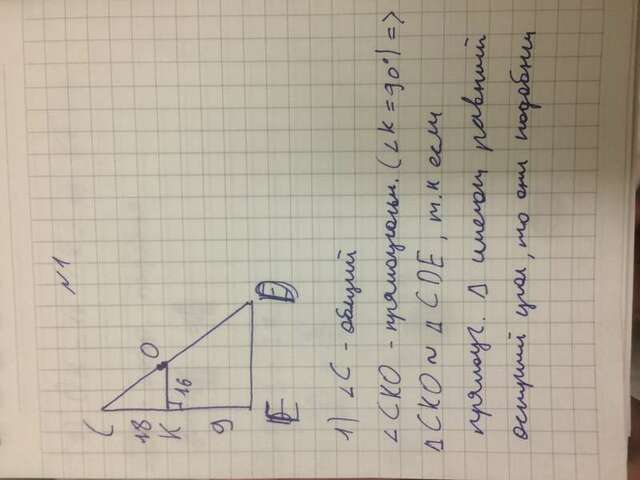 №1
C
O
18
K
16
9
E
D
1) ∠C - общий
∠CKO - прямоугольн. (∠K = 90°) =>
△CKO ~ △CDE, т.к если
прямоуг. △ имеют равный
острый угол, то они подобны